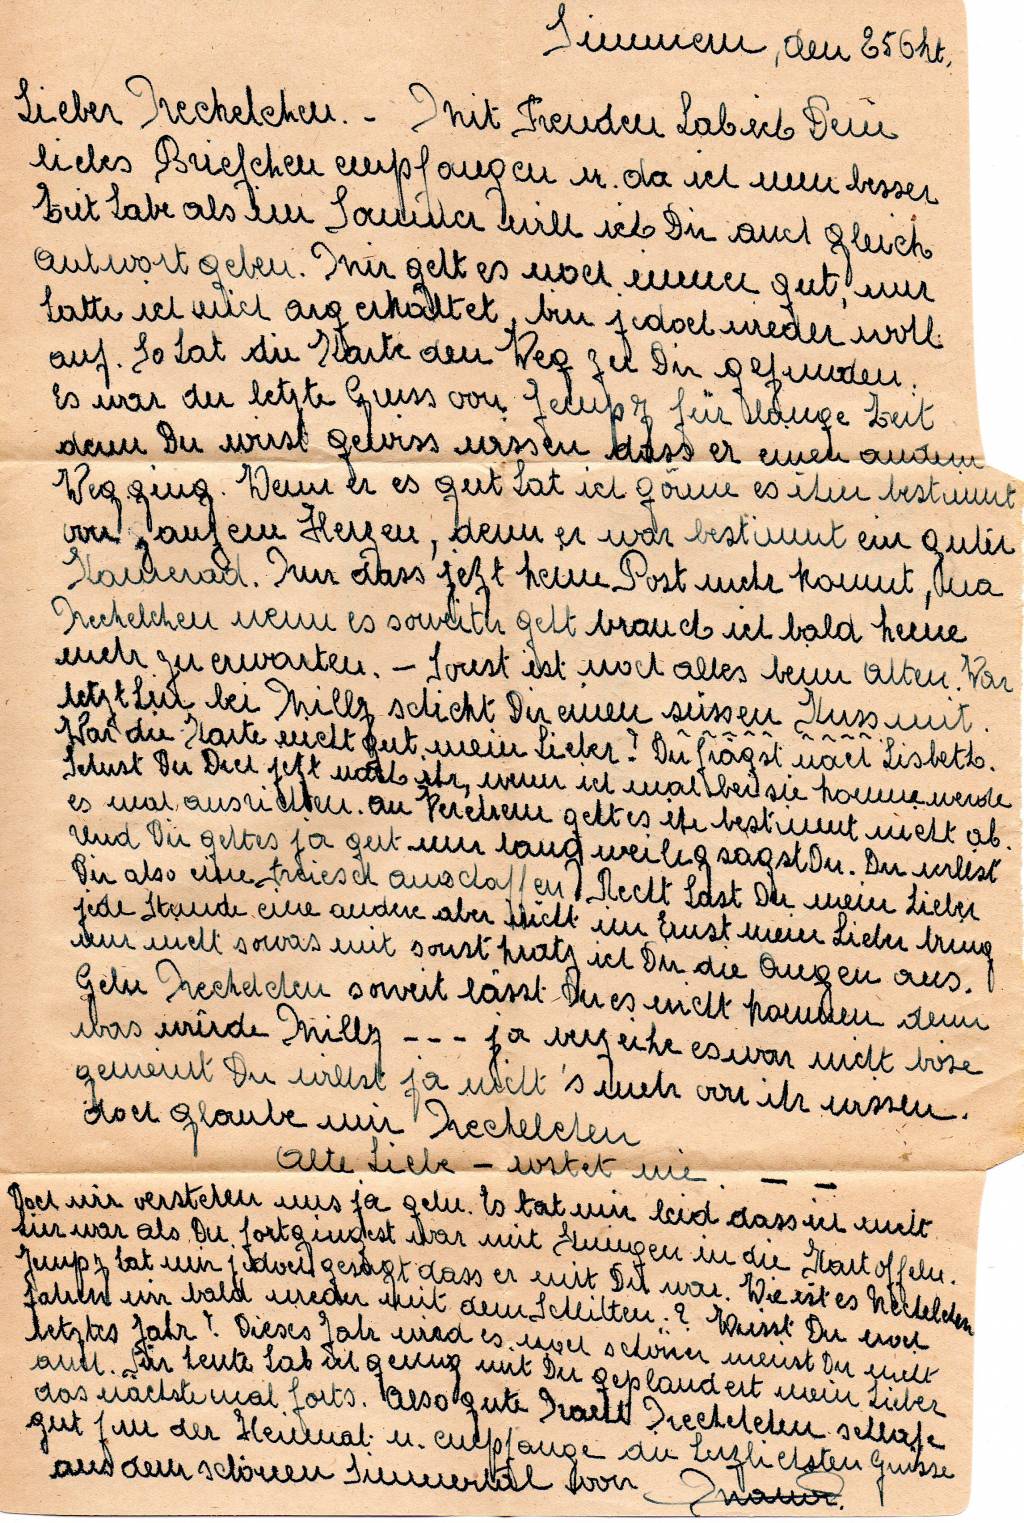 Simmern, den 25 Okt.
Lieber Nechelchen. - Mit Freuden hab ich Dein
liebes Briefchen empfangen u. da ich nun besser
Zeit habe als im Sommer will ich Dir auch gleich
Antwort geben. Mir geht es noch immer gut, nur
hatte ich mich arg erkältet, bin jedoch wieder wohl
auf. So hat die Karte den Weg zu Dir gefunden.
Es war der letzte Gruss von Jempy für lange Zeit
denn Du wirst gewiss wissen dass er einen andern
Weg ging. Wenn er es gut hat ich gönne es ihm bestimmt
von ganzem Herzen, denn er war bestimmt ein guter
Kamerad. Nur dass jetzt keine Post mehr kommt, Una
Nechelchen wenn es soweith geht brauch ich bald keine
mehr zu erwarten. - Sonst ist noch alles beim Alten. War
letzthin bei Milly schickt Dir einen süssen Kuss mit.
War die Karte nicht gut mein Lieber? Du frägst nach Lisbeth.
Schust Du Dich jetzt nach ihr, wenn ich mal bei sie komme werde
es mal ausrichten. An Verehrern geht es ihr bestimmt nicht ab.
Und Dir geht es ja gut nur langweilig sagst Du. Du willst
Dir also eine anschaffen? Recht hast Du mein Lieber
jede Stunde eine andere aber nicht im Ernst mein Lieber bring
nur nicht sowas mit sonst kratz ich Dir die Augen aus.
Geln Nechelchen soweit lässt Du es nicht kommen denn
was würde Milly --- ja verzeihe es war nicht böse
gemeint Du willst ja nicht's mehr von ihr wissen.
doch glaube mir Nechelchen
Alte Liebe - rostet nie. - -
Doch wir verstehen uns ja geln. Es tat mir leid dass ich nicht
hier war als Du fortgingest war mit Jungen in die Kartoffeln.
Jempy hat mir jedoch gesagt dass er mit Dir war. Wie ist es Nechelchen
fahren wir bald wieder mit dem Schlitten.? Weisst Du noch
letztes Jahr? Dieses Jahr wird es noch schöner meinst Du nicht
auch. Für heute hab ich genug mit Dir geplaudert mein Lieber
das nächstemal forts. Also gute Nacht Nechelchen schlafe
gut fun der Heimat u. empfange die herzlichsten Grüsse
aus dem schönen Simmertal von